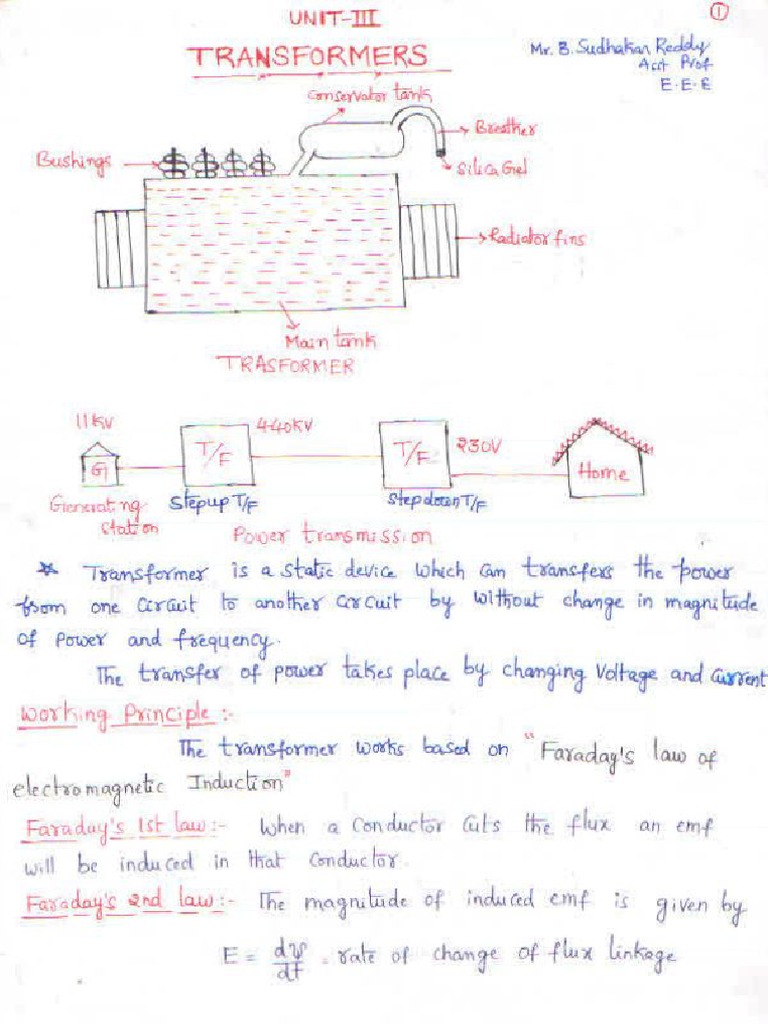 1
UNIT-III
TRANSFORMERS
Mr. B. Sudhakar Reddy
Asst Prof
E.E.E
conservator tank
Breather
Bushings
Silica Gel
Radiator fins
Main tank
TRASFORMER
11KV
440KV
230V
G
T/F
T/F
Home
Generating station
Stepup T/F
Stepdown T/F
Power transmission
* Transformer is a static device which can transfers the power
from one circuit to another circuit by without change in magnitude
of power and frequency.
The transfer of power takes place by changing voltage and current
Working Principle :-
The transformer works based on "Faraday's law of
electromagnetic Induction"
Faraday's 1st law :- When a conductor cuts the flux an emf
will be induced in that conductor.
Faraday's 2nd law :- The magnitude of induced emf is given by
E = dψ/dt = rate of change of flux linkage